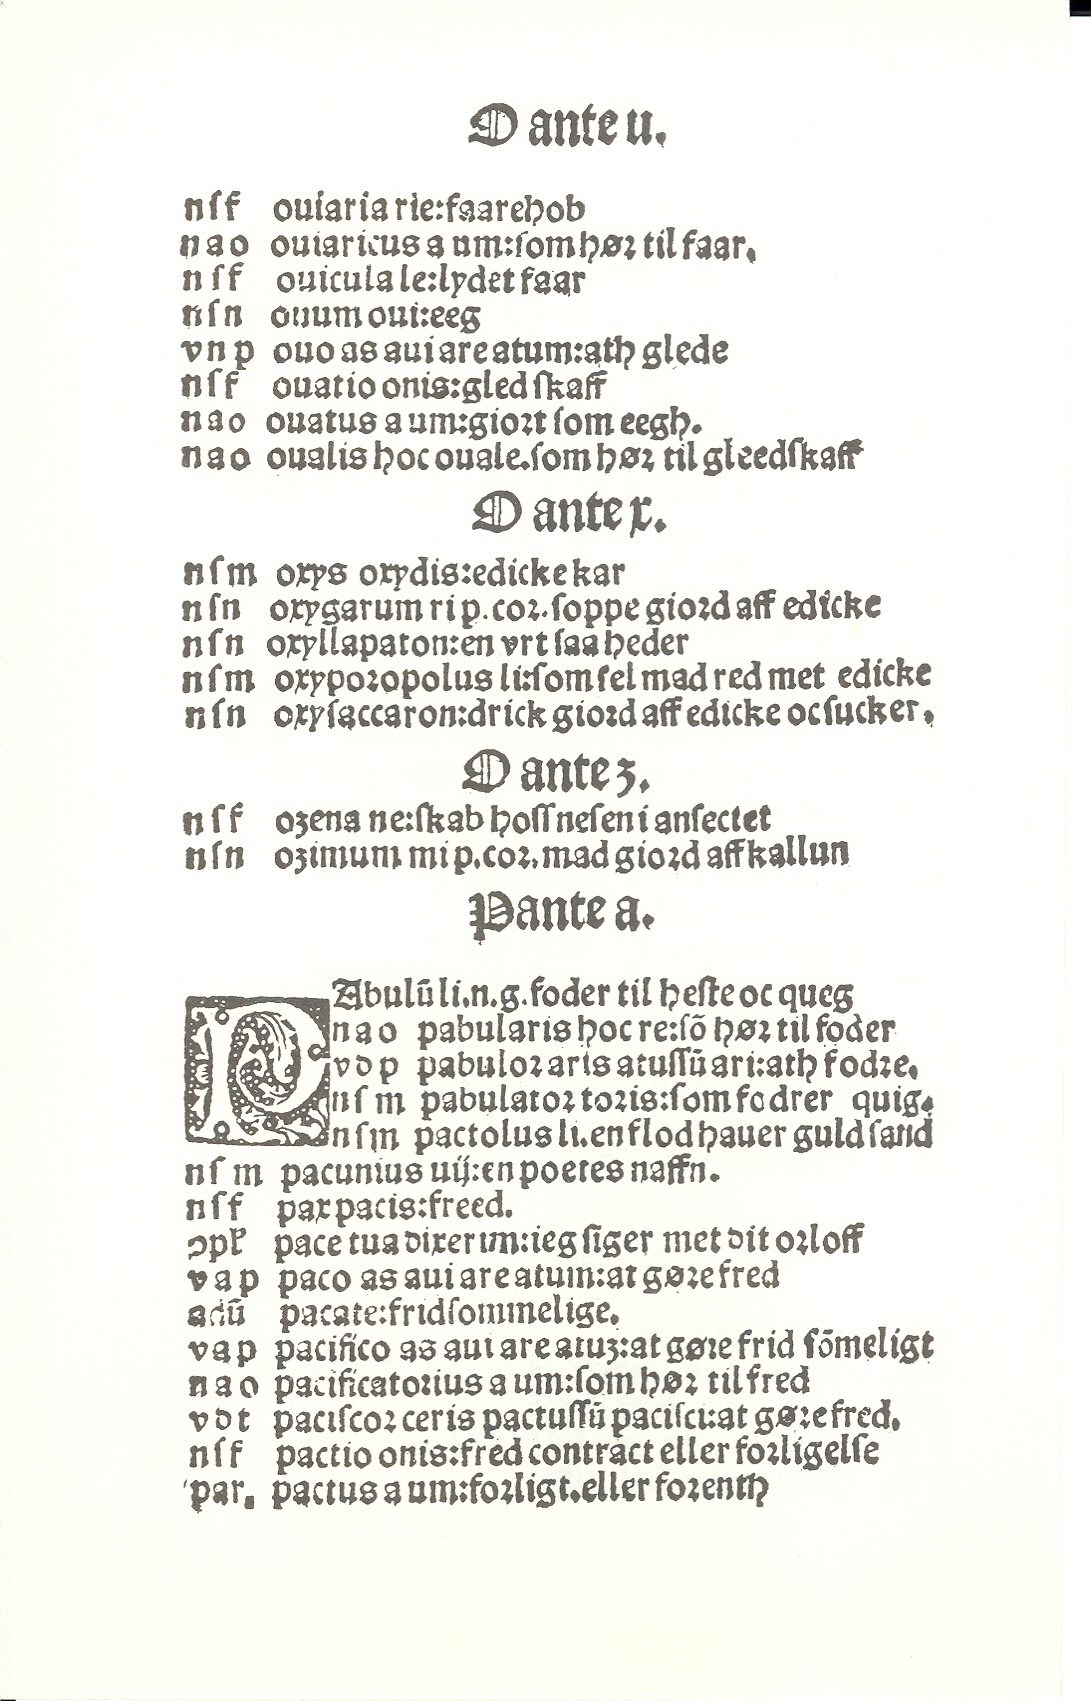 O ante u.
nſf ouiaria rie:faarehob
nao ouiaricus a um:ſom høꝛ til faar.
nſf ouicula le:lydet faar
nſn ouum oui:eeg
vnp ouo as aui are atum:ath glede
nſf ouatio onis:gled ſkaff
nao ouatus a um:gioꝛt ſom eegh.
nao oualis hoc ouale.ſom høꝛ til gleedſkaff
O ante x.
nſm oxys oxydis:edicke kar
nſn oxygarum ri p.coꝛ.ſoppe gioꝛd aff edicke
nſn oxyllapaton:en vrt ſaa heder
nſm oxypoꝛopolus li:ſom ſel mad red met edicke
nſn oxyſaccaron:drick gioꝛd aff edicke oc ſucker.
O ante z.
nſf ozena ne:ſkab hoſſ neſen i anſectet
nſn ozimum mi p.coꝛ.mad gioꝛd aff kallun
P ante a.
PAbulū li.n.g.foder til heſte oc queg
nao pabularis hoc re:ſō høꝛ til foder
vdp pabuloꝛ aris atuſſū ari:ath fodꝛe.
nſm pabulatoꝛ toꝛis:ſom fodrer quig.
nſm pactolus li.en flod hauer guld ſand
nſm pacunius uij:en poetes naffn.
nſf pax pacis:freed.
pace tua dixerim:ieg ſiger met dit oꝛloff
vap paco as aui are atum:at gøꝛe fred
adū pacate:fridſommelige.
vap pacifico as aui are atuꝫ:at gøꝛe frid ſōmeligt
nao pacificatoꝛius a um:ſom høꝛ til fred
vdt paciſcoꝛ ceris pactuſſū paciſci:at gøꝛe fred.
nſf pactio onis:fred contract eller foꝛligelſe
par. pactus a um:foꝛligt.eller foꝛenth